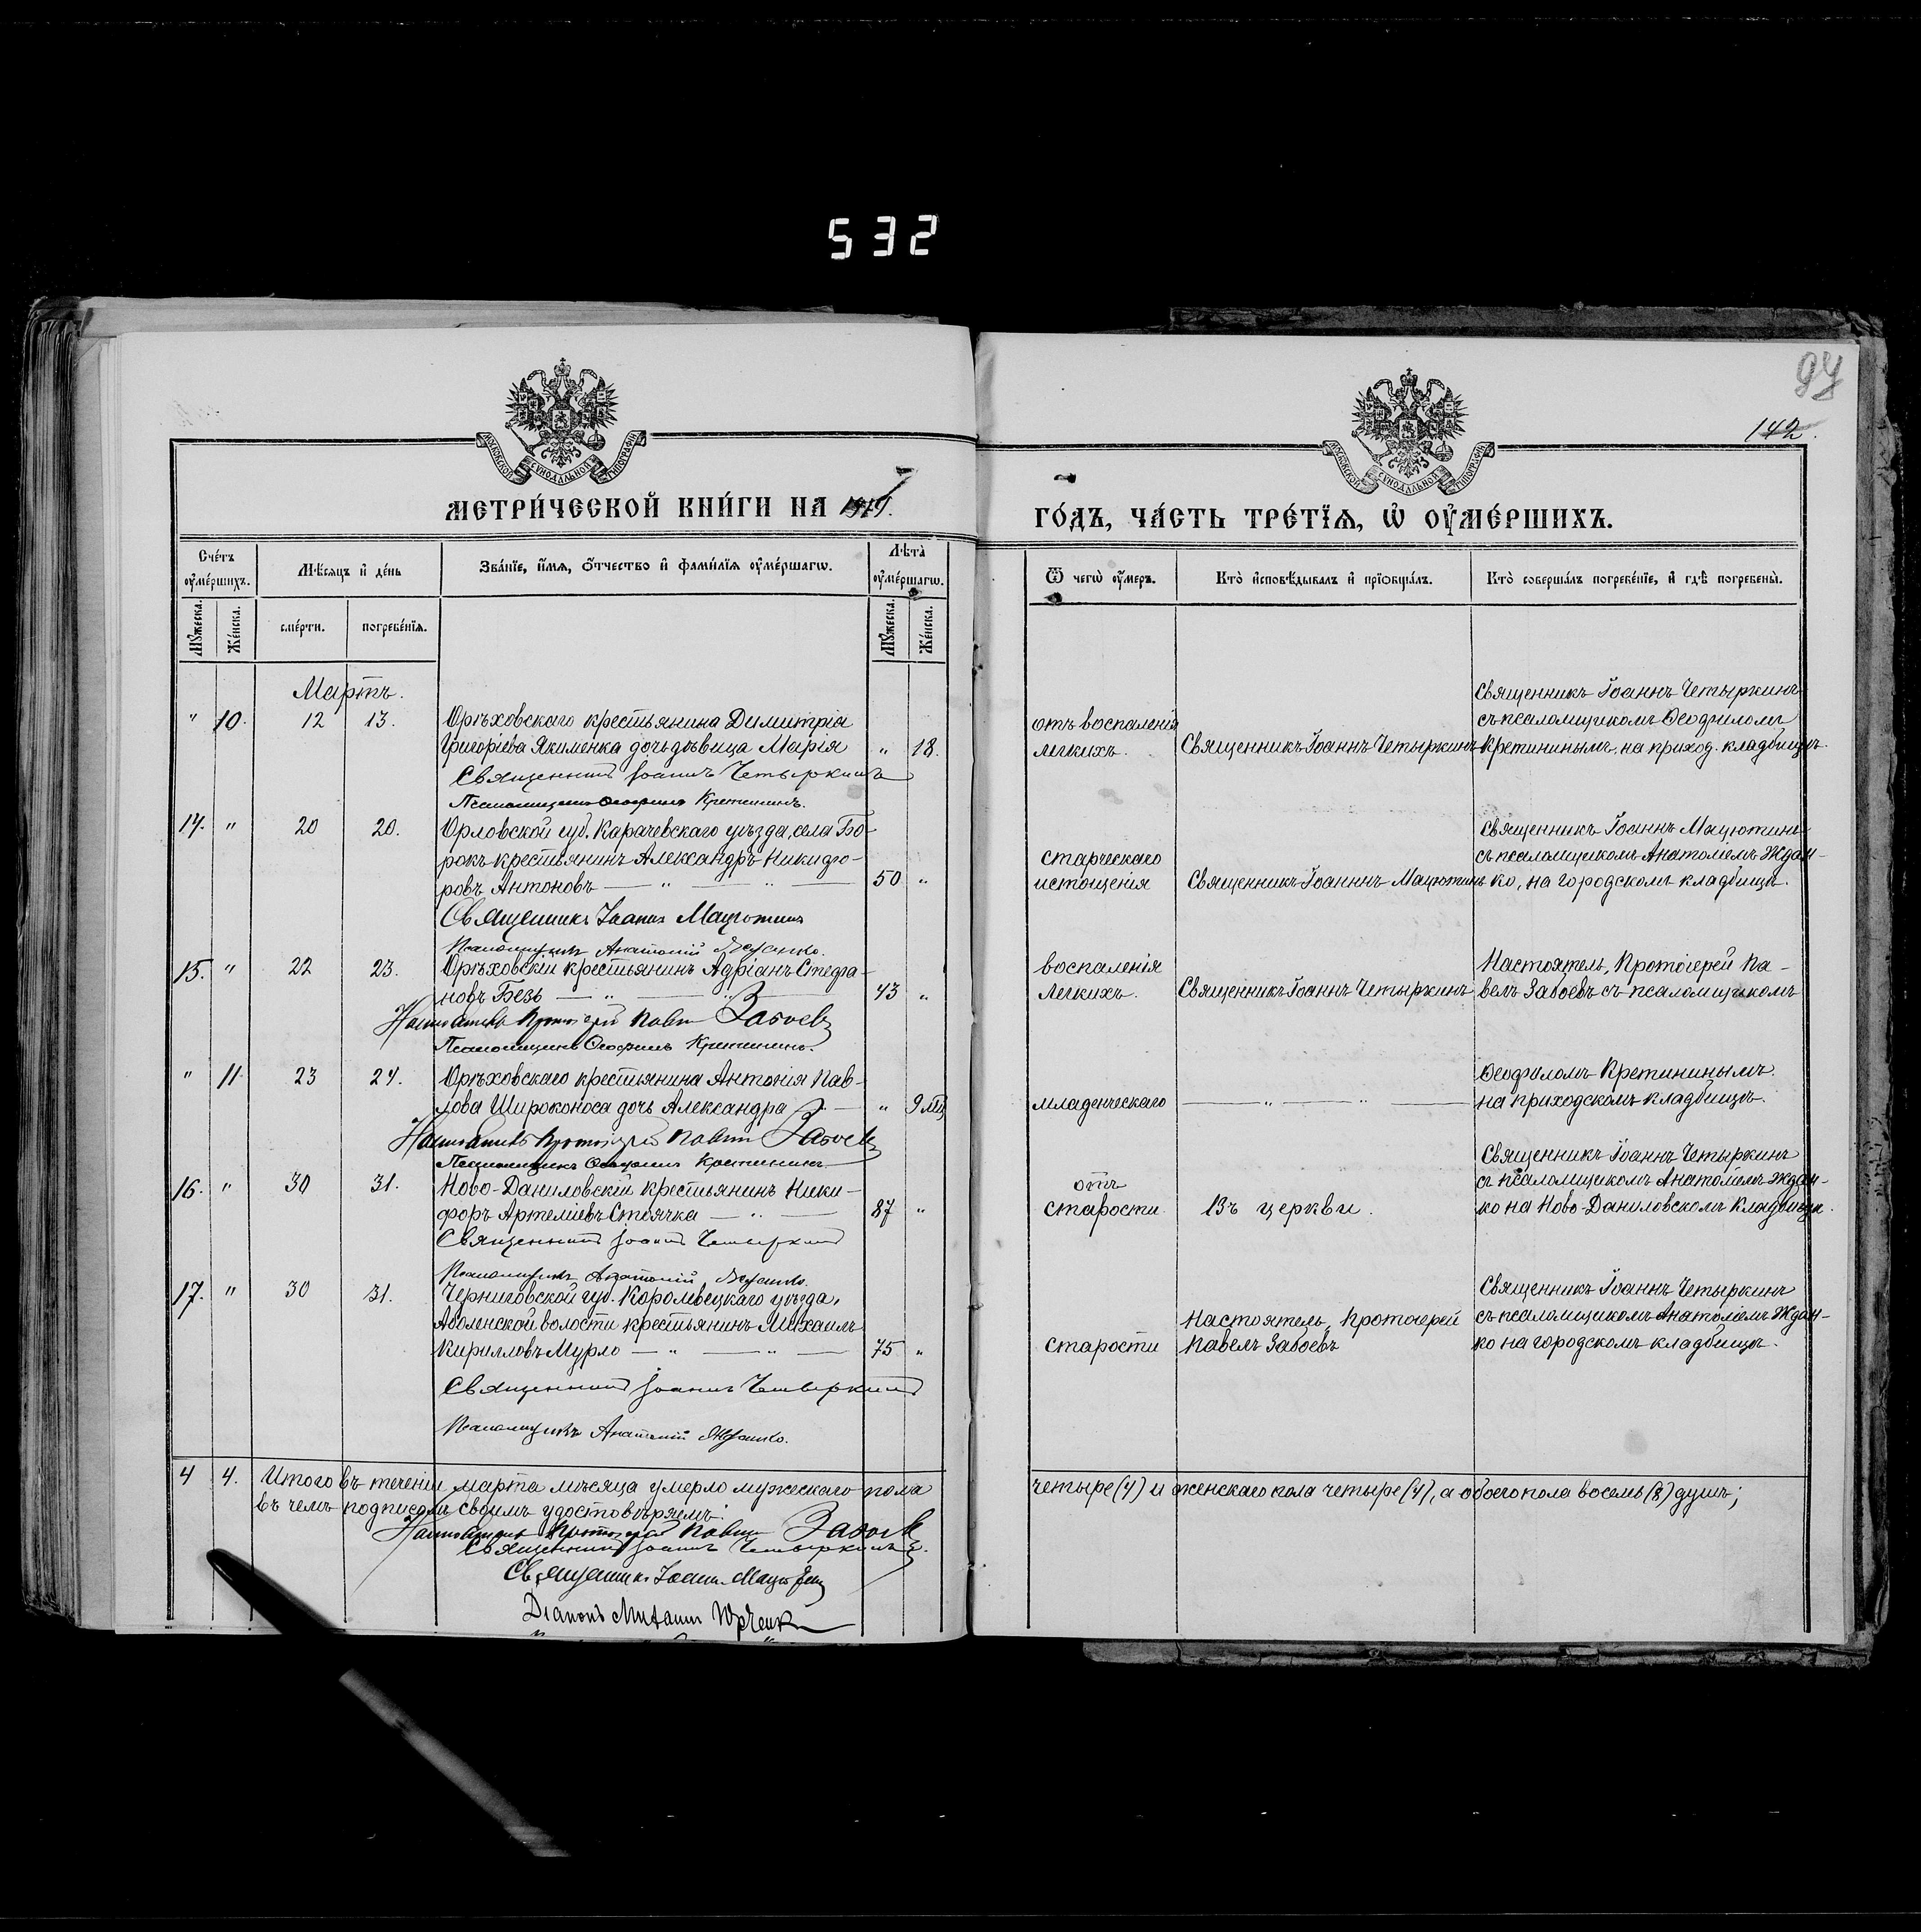 532
97
142.
МОСКОВСКОЙ СѴНОДАЛЬНОЙ ТИПОГРАФІИ
МОСКОВСКОЙ СѴНОДАЛЬНОЙ ТИПОГРАФІИ
МЕТРИ́ЧЕСКОЙ КНИ́ГИ НА
ГО́ДЪ, ЧА́СТЬ ТРЕ́ТЇѦ, Ѡ҆ ОУ҆МЕ́РШИХЪ.
Сче́тъ оумéршихъ.
Мѣ́сяцъ и҆ де́нь
Зва́нїе, и҆́мѧ, ѻ҆́тчество и҆ фами́лїѧ оу҆ме́ршагѡ.
Лѣ́та оу҆ме́ршагѡ.
Ѿ чегѡ̀ оу҆́меръ.
Кто̀ и҆сповѣ́дывалъ и҆ прїѡбща́лъ.
Кто̀ соверша́лъ погребе́нїе, и҆ гдѣ̀ погребены̀.
Мꙋ́жеска.
Же́нска.
сме́рти.
погребе́нїѧ.
Мꙋ́жеска.
Же́нска.
Мартъ.
" 10. 12 13. Орѣховскаго крестьянина Димитрія
Григоріева Якименка дочь дѣвица Марія " 18.
Священникъ Іоаннъ Четыркинъ
Псаломщикъ Ѳеофилъ Кретининъ.
отъ воспаленія
легкихъ.
Священникъ Іоаннъ Четыркинъ
Священникъ Іоаннъ Четыркинъ
съ псаломщикомъ Ѳеофиломъ
Кретининымъ, на приход. кладбищѣ.
14. " 20 20. Орловской губ. Карачевскаго уѣзда, села Бо-
рокъ крестьянинъ Александръ Никифо-
ровъ Антоновъ — " — " — 50 "
Священникъ Іоаннъ Мацютинъ
Псаломщикъ Анатолій Жданко.
старческаго
истощенія
Священникъ Іоаннъ Мацютинъ
Священникъ Іоаннъ Мацютинъ
съ псаломщикомъ Анатоліемъ Ждан-
ко, на городскомъ кладбищѣ.
15. " 22 23. Орѣховскій крестьянинъ Адріанъ Стефа-
новъ Безъ — " — " — 43 "
Настоятель Протоіерей Павелъ Забоевъ
Псаломщикъ Ѳеофилъ Кретининъ.
воспаленія
легкихъ.
Священникъ Іоаннъ Четыркинъ
Настоятель, Протоіерей Па-
велъ Забоевъ съ псаломщикомъ
" 11. 23 24. Орѣховскаго крестьянина Антонія Пав-
лова Широконоса дочь Александра — " 9 мѣ
Настоятель Протоіерей Павелъ Забоевъ
Псаломщикъ Ѳеофилъ Кретининъ
младенческаго
— " — " —
Ѳеофиломъ Кретининымъ.
на приходскомъ кладбищѣ.
16. " 30 31. Ново-Даниловскій крестьянинъ Ники-
форъ Артеміевъ Стоячка — " — 87 "
Священникъ Іоаннъ Четыркинъ
Псаломщикъ Анатолій Жданко.
отъ
старости.
Въ церкви.
Священникъ Іоаннъ Четыркинъ
съ псаломщикомъ Анатоліемъ Ждан-
ко на Ново-Даниловскомъ кладбищѣ.
17. " 30 31. Черниговской губ. Королевецкаго уѣзда,
Аболенской волости крестьянинъ Михаилъ
Кирилловъ Мурло — " — " — 75 "
Священникъ Іоаннъ Четыркинъ
Псаломщикъ Анатолій Жданко.
старости
Настоятель, Протоіерей
Павелъ Забоевъ
Священникъ Іоаннъ Четыркинъ
съ псаломщикомъ Анатоліемъ Ждан-
ко на городскомъ кладбищѣ.
4 4. Итого въ теченіи марта мѣсяца умерло мужескаго пола четыре (4) и женскаго пола четыре (4), а обоего пола восемь (8) душъ;
въ чемъ подписомъ своимъ удостовѣряемъ:
Настоятель Протоіерей Павелъ Забоевъ
Священникъ Іоаннъ Четыркинъ.
Священникъ Іоаннъ Мацютинъ
Діаконъ Михаилъ Юрченко